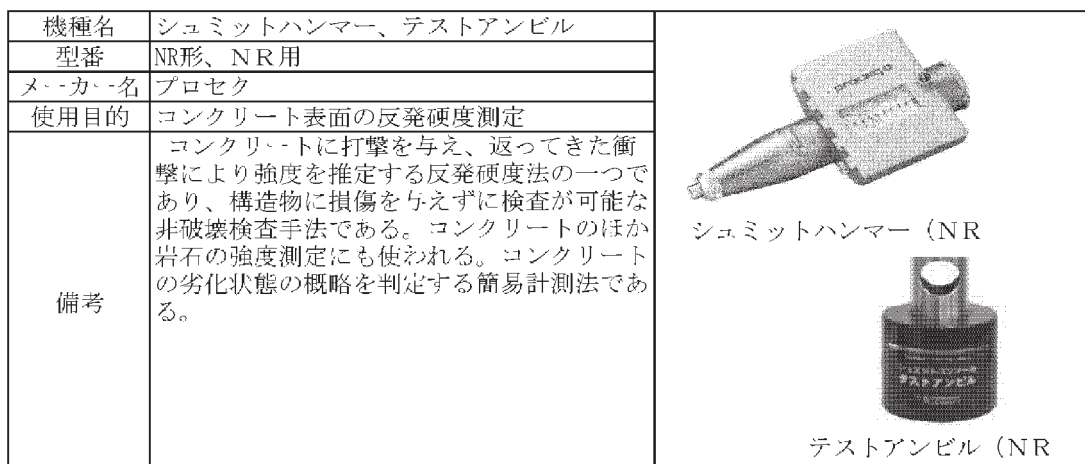 機種名 シュミットハンマー、テストアンビル
型番 NR形、ＮＲ用
メーカー名 プロセク
使用目的 コンクリート表面の反発硬度測定
備考
コンクリートに打撃を与え、返ってきた衝
撃により強度を推定する反発硬度法の一つで
あり、構造物に損傷を与えずに検査が可能な
非破壊検査手法である。コンクリートのほか
岩石の強度測定にも使われる。コンクリート
の劣化状態の概略を判定する簡易計測法であ
る。
シュミットハンマー（ＮＲ
テストアンビル
テストアンビル（ＮＲ